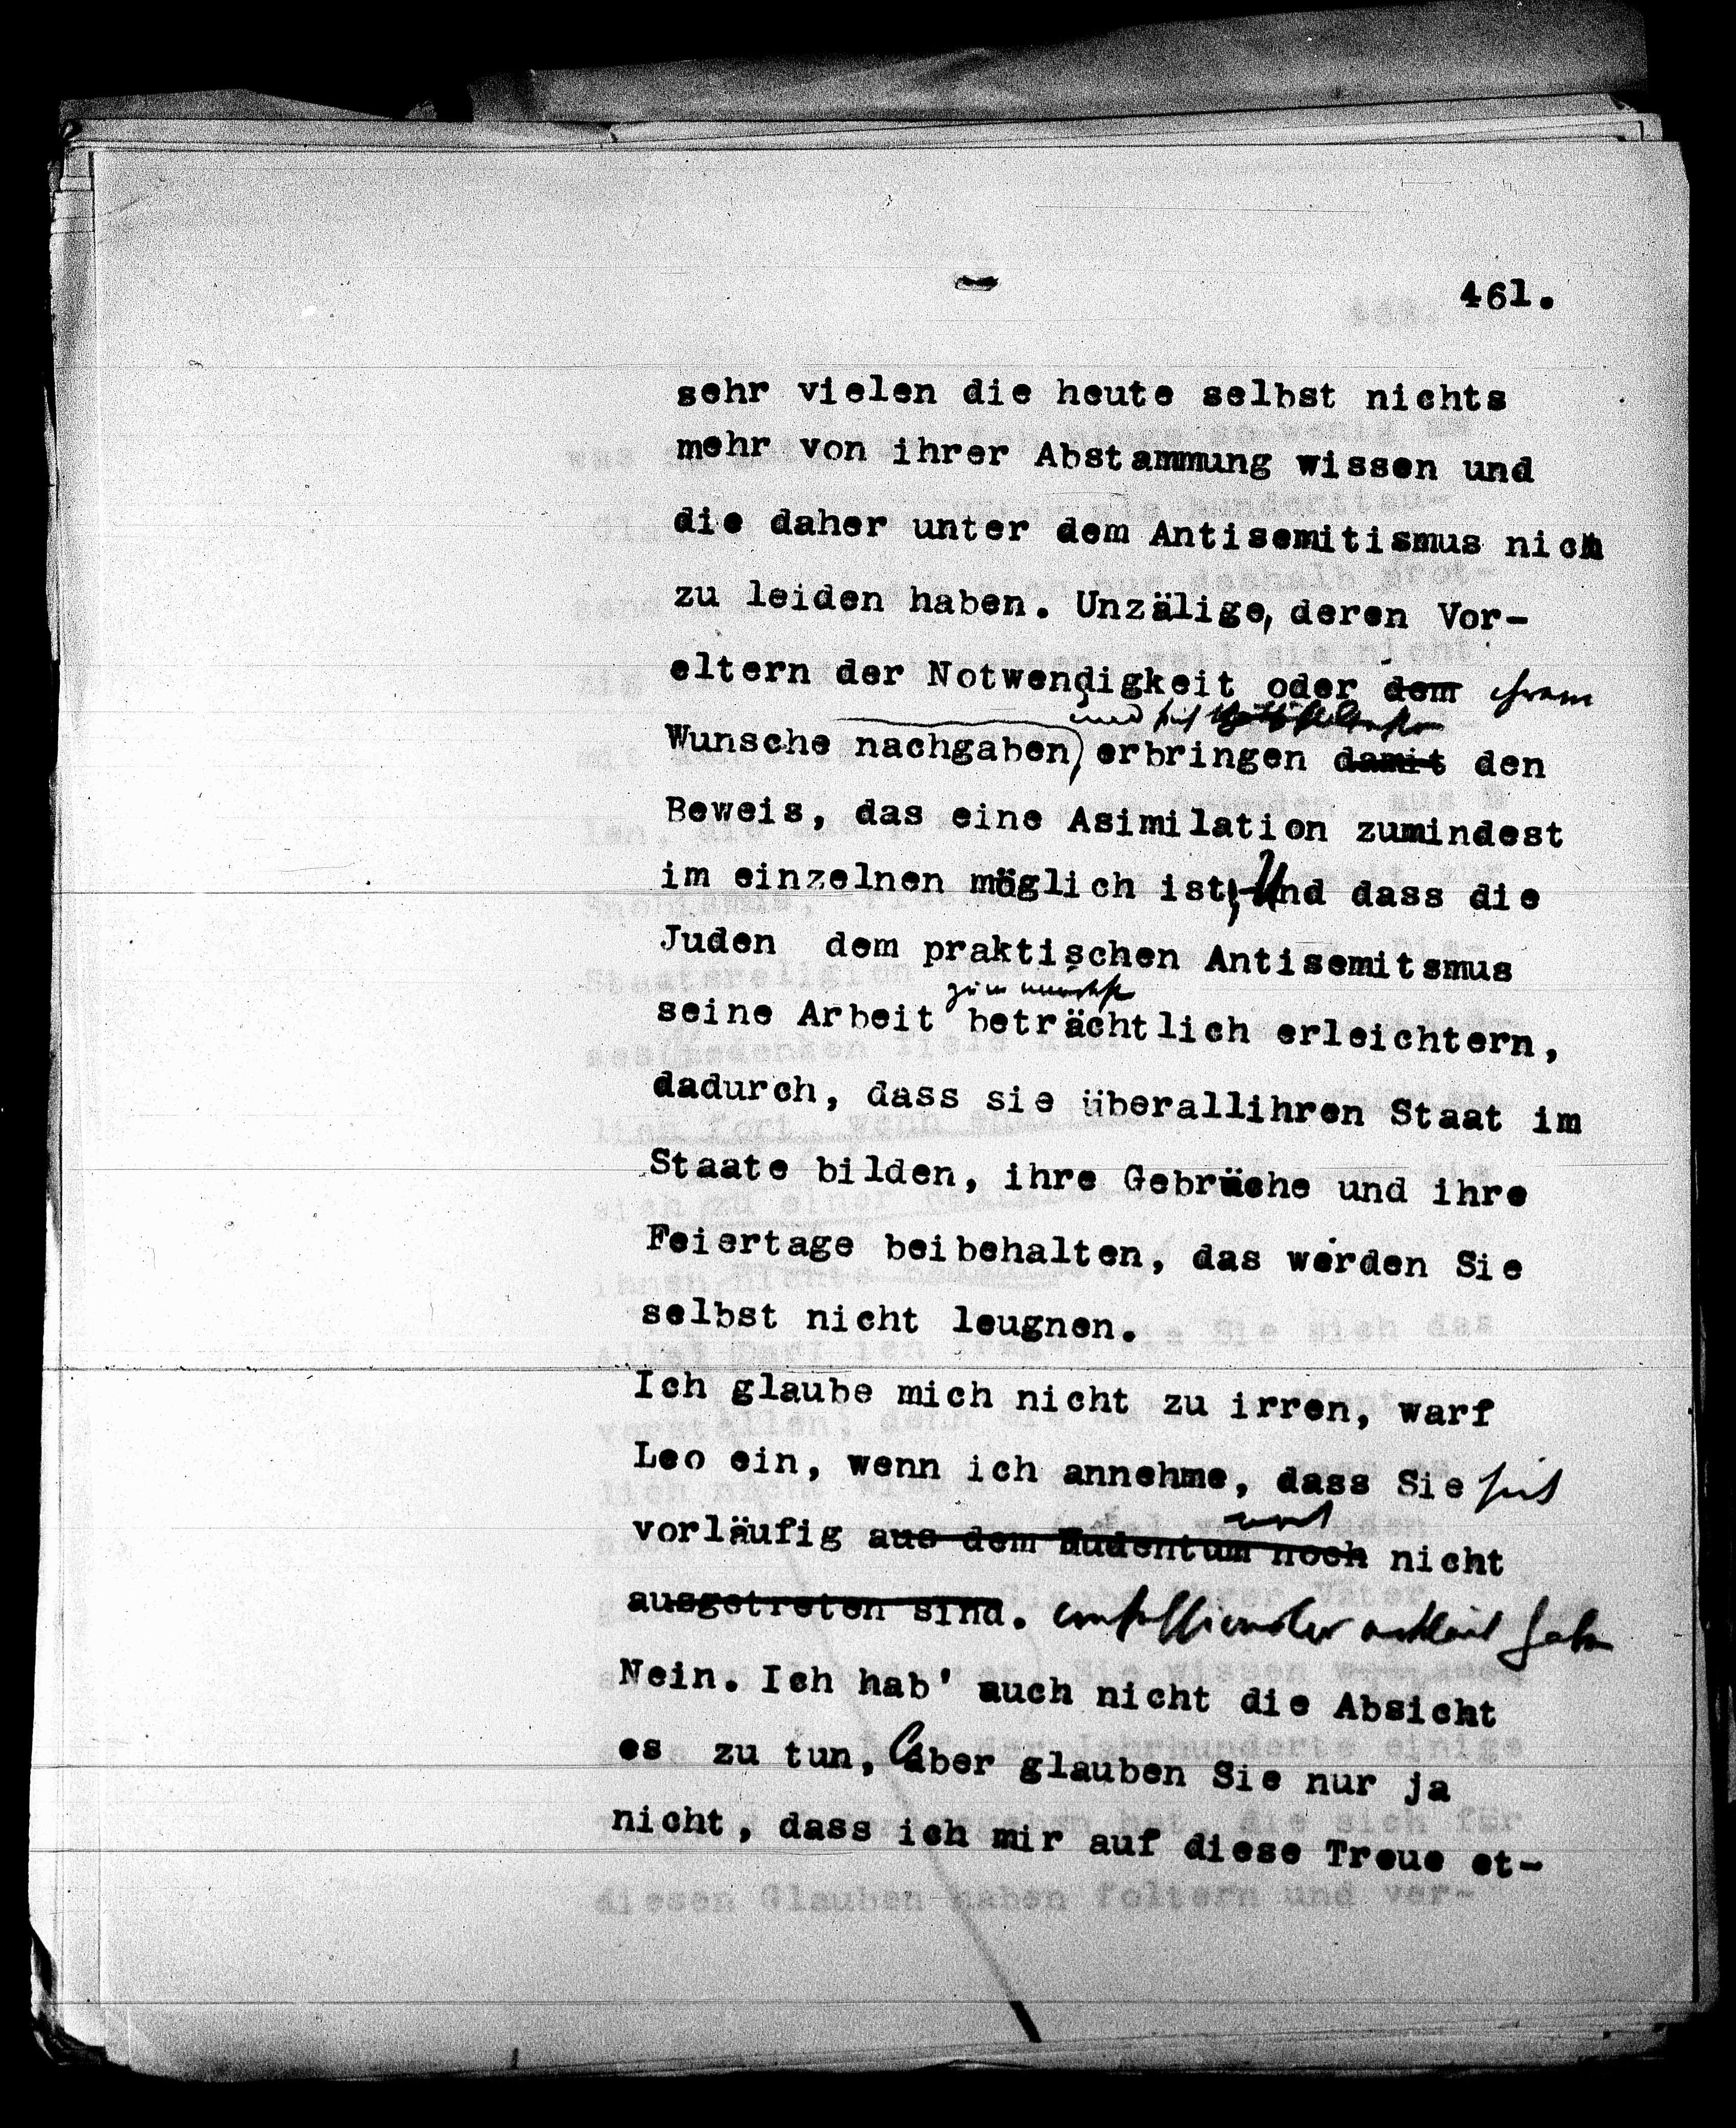 461.
sehr vielen die heute selbst nichts
mehr von ihrer Abstammung wissen und
die daher unter dem Antisemitismus nich
zu leiden haben. Unzälige, deren Vor-
eltern der Notwendigkeit oder dem ihrem
und sich
Wunsche nachgaben, erbringen damit den
Beweis, das eine Asimilation zumindest
im einzelnen möglich ist, Und dass die
Juden dem praktischen Antisemitsmus
zumindest
seine Arbeit beträchtlich erleichtern,
dadurch, dass sie überallihren Staat im
Staate bilden, ihre Gebräche und ihre
Feiertage beibehalten, das werden Sie
selbst nicht leugnen.
Ich glaube mich nicht zu irren, warf
Leo ein, wenn ich annehme, dass Sie sich
vorläufig aus dem Judentum noch nicht
ausgetreten sind. confessionslos erklärt haben
Nein. Ich hab' auch nicht die Absicht
es zu tun, aber glauben Sie nur ja
nicht, dass ich mir auf diese Treue et-